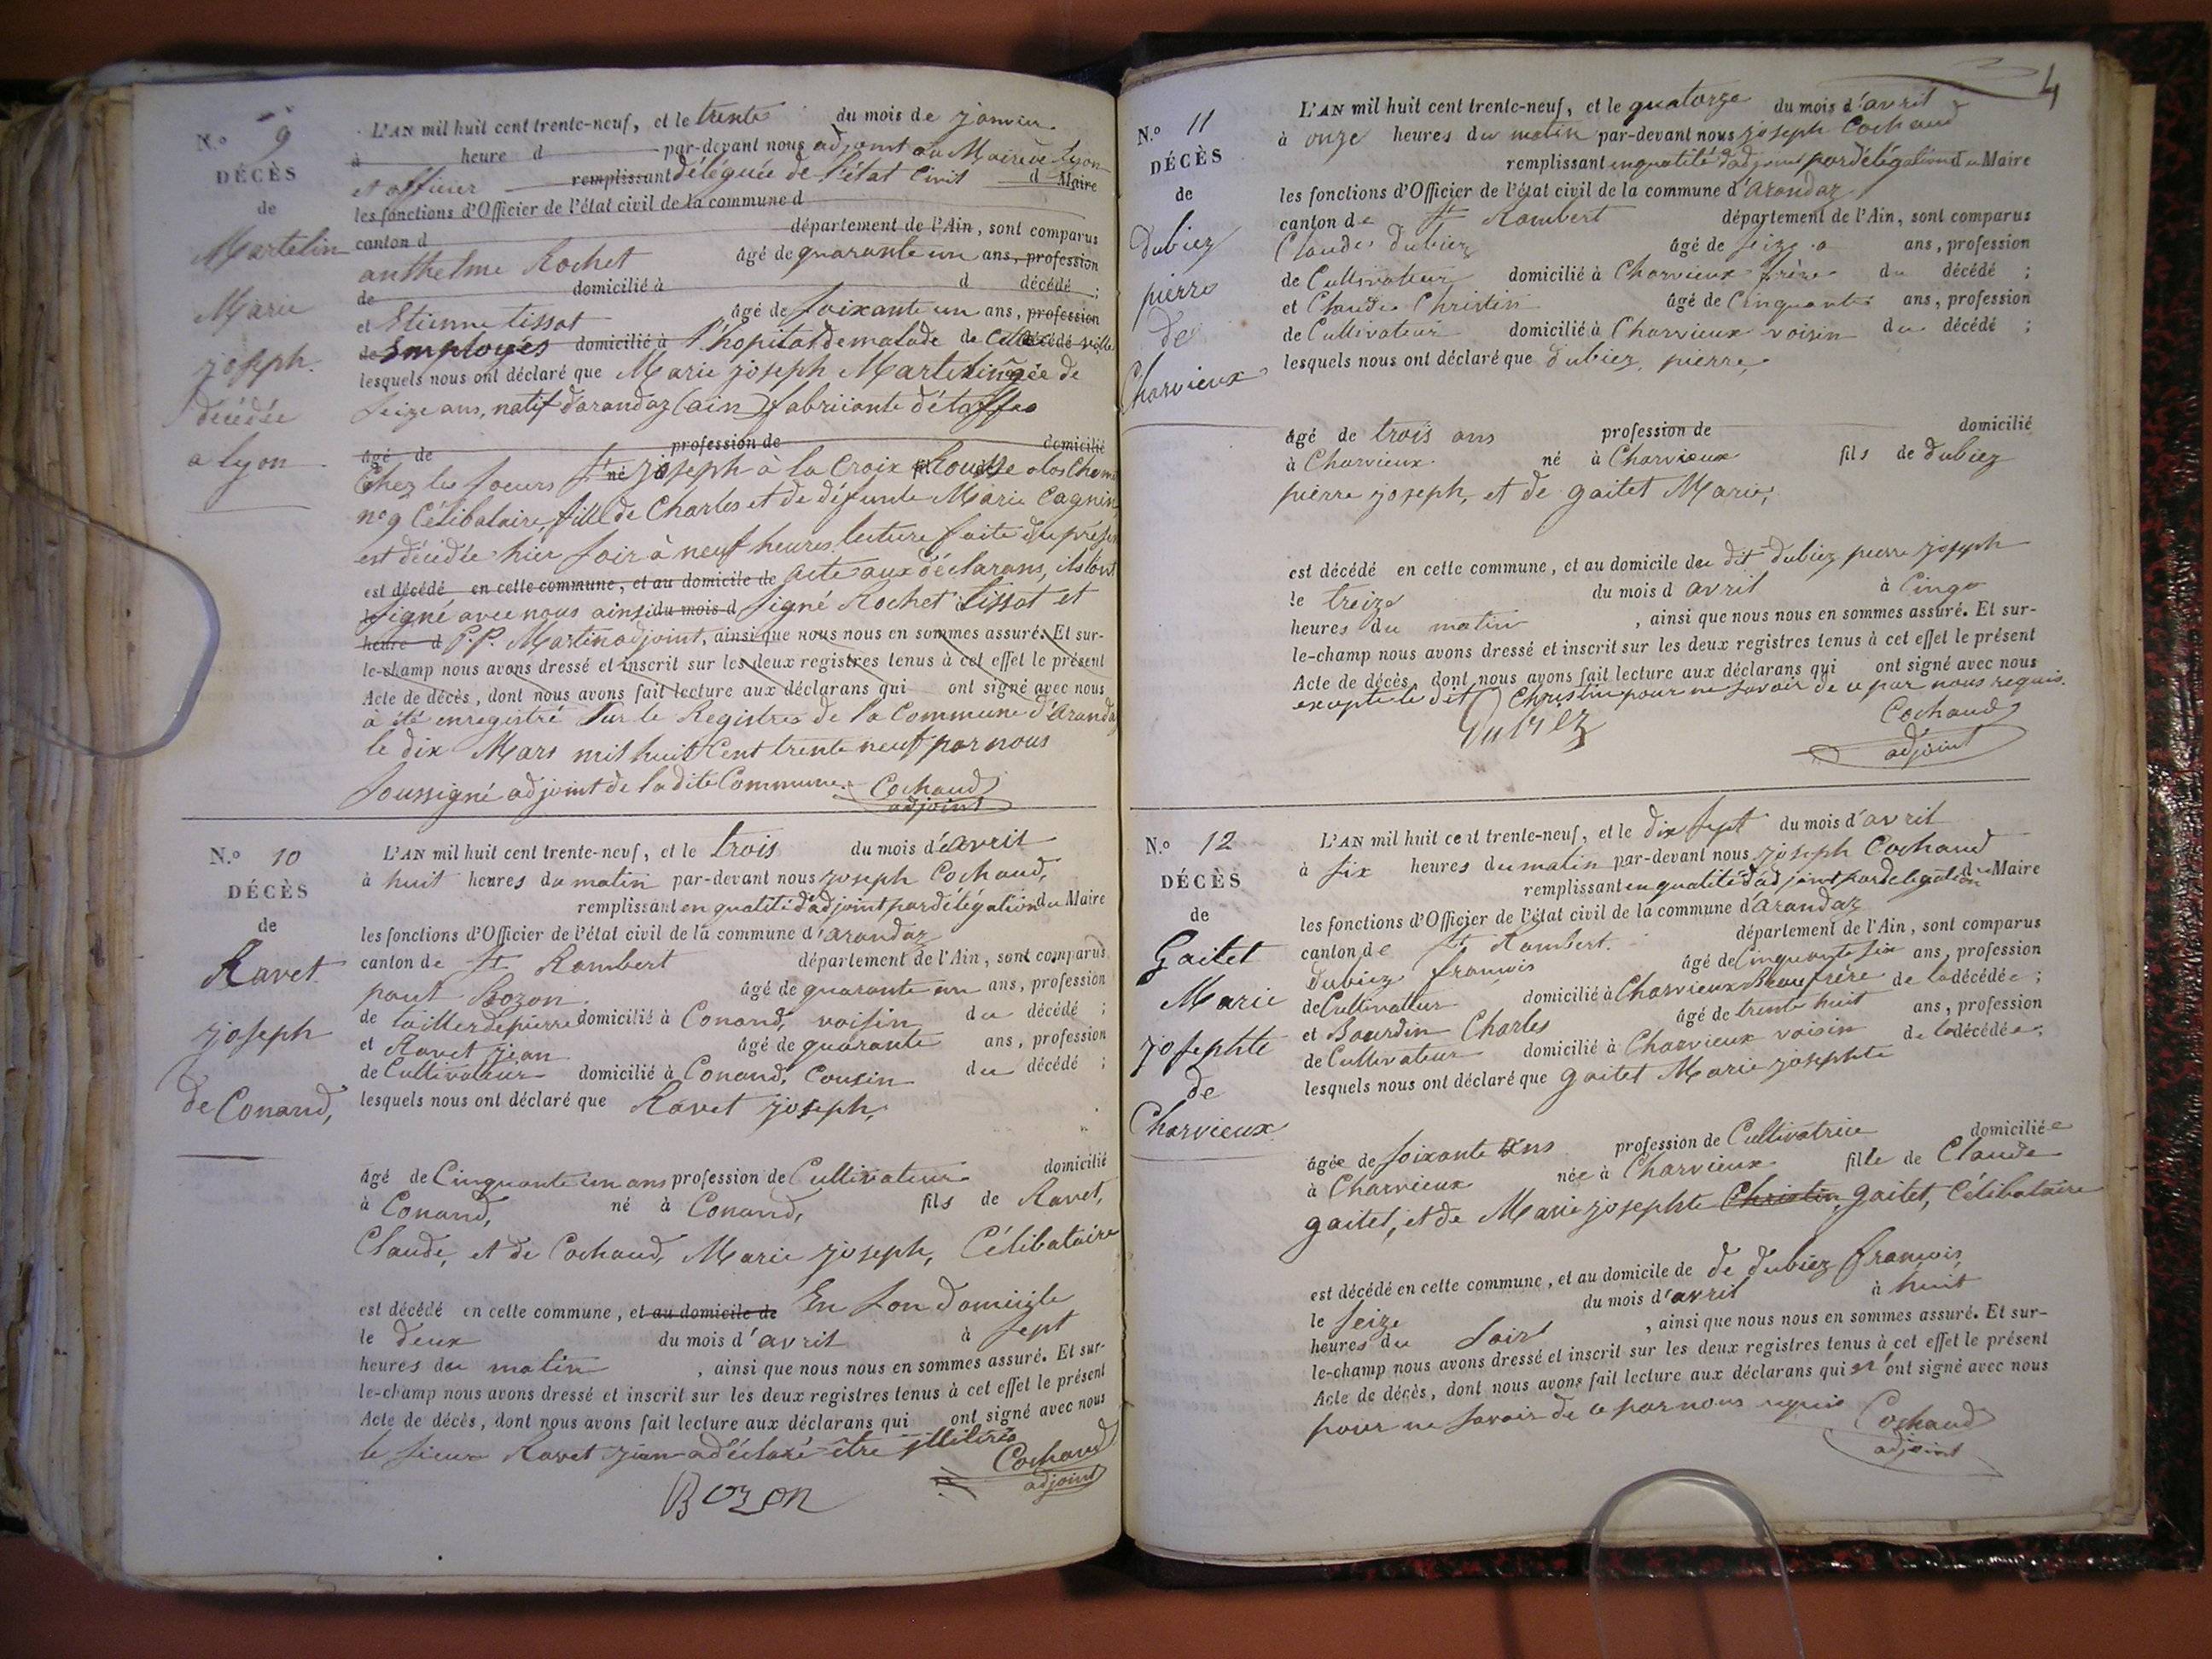 N.o 9
DÉCÈS
de
Martelin
Marie
joseph.
décédée
a lyon.
L'AN mil huit cent trente-neuf, et le trente du mois de janvier
à heure d par-devant nous adjoint au Maire de lyon
et officier remplissant déléguée de l'état Civil d Maire
les fonctions d'Officier de l'état civil de la commune d
canton d département de l'Ain, sont comparus
anthelme Rochet âgé de quarante un ans, profession
de domicilié à d décédé ;
et Etienne tissot âgé de soixante un ans, profession
de Employés domicilié à l'hopital de malade de Cette décédé ville
lesquels nous ont déclaré que Marie joseph Martelin agée de
seize ans, natif d'arandaz (ain) fabricante d'étoffes
âgé de profession de domicilié
Chez les soeurs St né joseph à la Croix Rousse
no 9 Célibataire, fille de Charles et de défunte Marie Cagnin,
est décédée hier soir à neuf heures. lecture faite du présent
est décédé en cette commune, et au domicile de acte aux déclarans, ils l'ont
le signé avec nous ainsi du mois d signé Rochet tissot et
heure d P.P. Martin adjoint, ainsi que nous nous en sommes assuré. Et sur-
le-champ nous avons dressé et inscrit sur les deux registres tenus à cet effet le présent
Acte de décès, dont nous avons fait lecture aux déclarans qui ont signé avec nous
à été enregistré sur le Registres de la Commune d'Aranda
le dix Mars mil huit Cent trente neuf par nous
soussigné adjoint de la dite Commune. Cochaud
adjoint
N.o 10
DÉCÈS
de
Ravet
joseph
de Conand,
L'AN mil huit cent trente-neuf, et le trois du mois d'avril
à huit heures du matin par-devant nous joseph Cochaud,
remplissant en qualité d'adjoint par délégation du Maire
les fonctions d'Officier de l'état civil de la commune d'arandaz
canton de St Rambert département de l'Ain, sont comparus
paul Bozon âgé de quarante un ans, profession
de tailler de pierre domicilié à Conand, voisin du décédé ;
et Ravet jean âgé de quarante ans, profession
de Cultivateur domicilié à Conand, Cousin du décédé ;
lesquels nous ont déclaré que Ravet joseph,
âgé de Cinquante un ans profession de Cultivateur domicilié
à Conand, né à Conand, fils de Ravet,
Claude, et de Cochaud, Marie joseph, Célibataire
est décédé en cette commune, et au domicile de En son domicile
le deux du mois d'avril à sept
heures du matin , ainsi que nous nous en sommes assuré. Et sur-
le-champ nous avons dressé et inscrit sur les deux registres tenus à cet effet le présent
Acte de décès, dont nous avons fait lecture aux déclarans qui ont signé avec nous
le sieur Ravet jean a déclaré être
Cochaud
adjoint
Bozon
4
N.o 11
DÉCÈS
de
Dubiez
pierre
de
Charvieux
L'AN mil huit cent trente-neuf, et le quatorze du mois d'avril
à onze heures du matin par-devant nous joseph Cochaud
remplissant en qualité d'adjoint par délégation du Maire
les fonctions d'Officier de l'état civil de la commune d'arandaz,
canton de St Rambert département de l'Ain, sont comparus
Claude Dubiez âgé de seize ans, profession
de Cultivateur domicilié à Charvieux frère du décédé ;
et Claude Christin âgé de Cinquante ans, profession
de Cultivateur domicilié à Charvieux voisin du décédé ;
lesquels nous ont déclaré que Dubiez, pierre,
âgé de trois ans profession de domicilié
à Charvieux né à Charvieux fils de Dubiez
pierre joseph, et de gaitet Marie,
est décédé en cette commune, et au domicile du dit Dubiez pierre joseph
le treize du mois d avril à Cinq
heures du matin , ainsi que nous nous en sommes assuré. Et sur-
le-champ nous avons dressé et inscrit sur les deux registres tenus à cet effet le présent
Acte de décès, dont nous avons fait lecture aux déclarans qui ont signé avec nous
excepté le dit Christin pour ne savoir de ce par nous requis.
Dubiez
Cochaud
adjoint
N.o 12
DÉCÈS
de
Gaitet
Marie
josephte
de
Charvieux
L'AN mil huit cent trente-neuf, et le dix sept du mois d'avril
à six heures du matin par-devant nous joseph Cochaud
remplissant en qualité d'adjoint par délégation du Maire
les fonctions d'Officier de l'état civil de la commune d'arandaz
canton de St Rambert. département de l'Ain, sont comparus
Dubiez françois âgé de Cinquante six ans, profession
de Cultivateur domicilié à Charvieux Beau frère de la décédée ;
et Bourdin Charles âgé de trente huit ans, profession
de Cultivateur domicilié à Charvieux voisin de la décédée ;
lesquels nous ont déclaré que gaitet Marie josephte
âgée de soixante ans profession de Cultivatrice domiciliée
à Charvieux née à Charvieux fille de Claude
gaitet, et de Marie josephte Christin, gaitet, Célibataire
est décédé en cette commune, et au domicile de de Dubiez françois,
le seize du mois d'avril à huit
heures du soir , ainsi que nous nous en sommes assuré. Et sur-
le-champ nous avons dressé et inscrit sur les deux registres tenus à cet effet le présent
Acte de décès, dont nous avons fait lecture aux déclarans qui n'ont signé avec nous
pour ne savoir de ce par nous requis Cochaud
adjoint